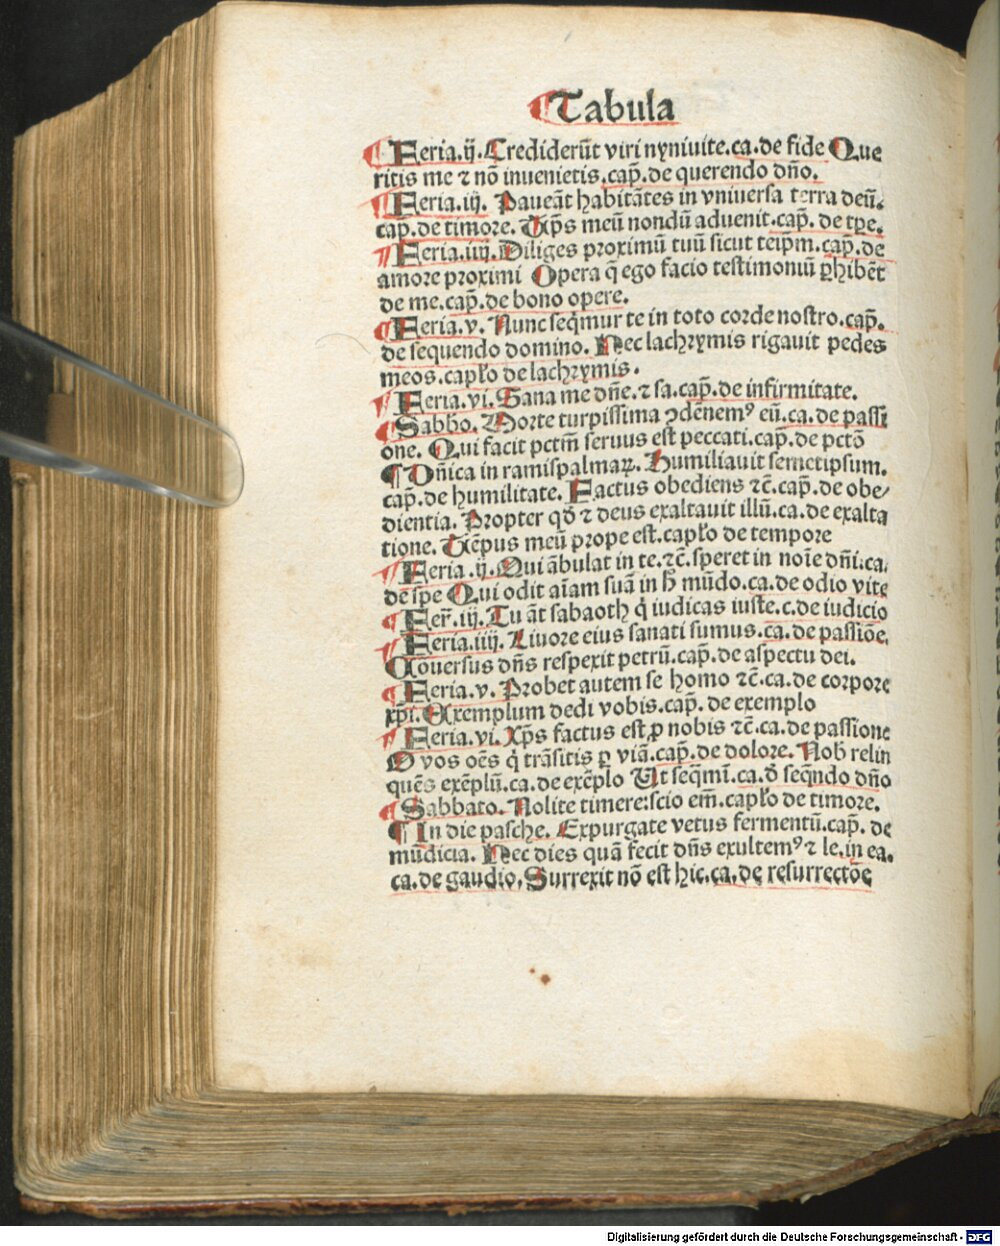 ¶Tabula
¶Feria.ij.Crediderūt viri nyniuite.ca.de fide Que
ritis me ⁊ nō inuenietis.cap̄.de querendo dn̄o.
¶Feria.iij. Paueāt habitātes in vniuersa terra deū.
cap̄.de timore. Tp̄s meū nondū aduenit.cap̄. de tp̄e.
¶Feria.iiij.Diliges proximū tuū sicut teip̄m.cap̄.de
amore proximi Opera q̄ ego facio testimoniū ꝑhibēt
de me.cap̄.de bono opere.
¶Feria.v. Nunc seq̄mur te in toto corde nostro.cap̄.
de sequendo domino. Nec lachrymis rigauit pedes
meos.capło de lachrymis.
¶Feria.vi.Sana me dn̄e.⁊ sa.cap̄.de infirmitate.
¶Sabbo. Morte turpissima ↄdēnemꝰ eū.ca.de passi
one. Qui facit pctm̄ seruus est peccati.cap̄.de pctō
¶Dn̄ica in ramispalmaꝝ. Humiliauit semetipsum.
cap̄.de humilitate. Factus obediens ⁊c̄.cap̄.de obe⸗
dientia. Propter qd̄ ⁊ deus exaltauit illū.ca.de exalta
tione. Tēpus meū prope est.capło de tempore
¶Feria.ij.Qui ābulat in te.⁊c̄.speret in noīe dn̄i.ca.
de spe Qui odit aīam suā in h̄ mūdo.ca.de odio vite
¶Fer̄.iij.Tu āt sabaoth q̇ iudicas iuste.c.de iudicio
¶Feria.iiij.Liuore eius sanati sumus.ca.de passiōe.
Cōuersus dn̄s respexit petrū.cap̄.de aspectu dei.
¶Feria.v.Probet autem se homo ⁊c̄.ca.de corpore
xp̄i.Exemplum dedi vobis.cap̄. de exemplo
¶Feria.vi.Xp̄s factus est ꝓ nobis ⁊c̄.ca.de passione
O vos oēs q̇ trāsitis ꝑ viā.cap̄.de dolore. Nob̄ relin
quēs exēplū.ca.de exēplo Ut seq̄mī.ca.d̄ seq̄ndo dn̄o
¶Sabbato. Nolite timere:scio em̄.capło de timore.
¶In die pasche. Expurgate vetus fermentū.cap̄. de
mūdicia. Hec dies quā fecit dn̄s exultemꝰ ⁊ le.in ea.
ca.de gaudio. Surrexit nō est hic.ca.de resurrectōe
Digitalisierung gefördert durch die Deutsche Forschungsgemeinschaft - DFG